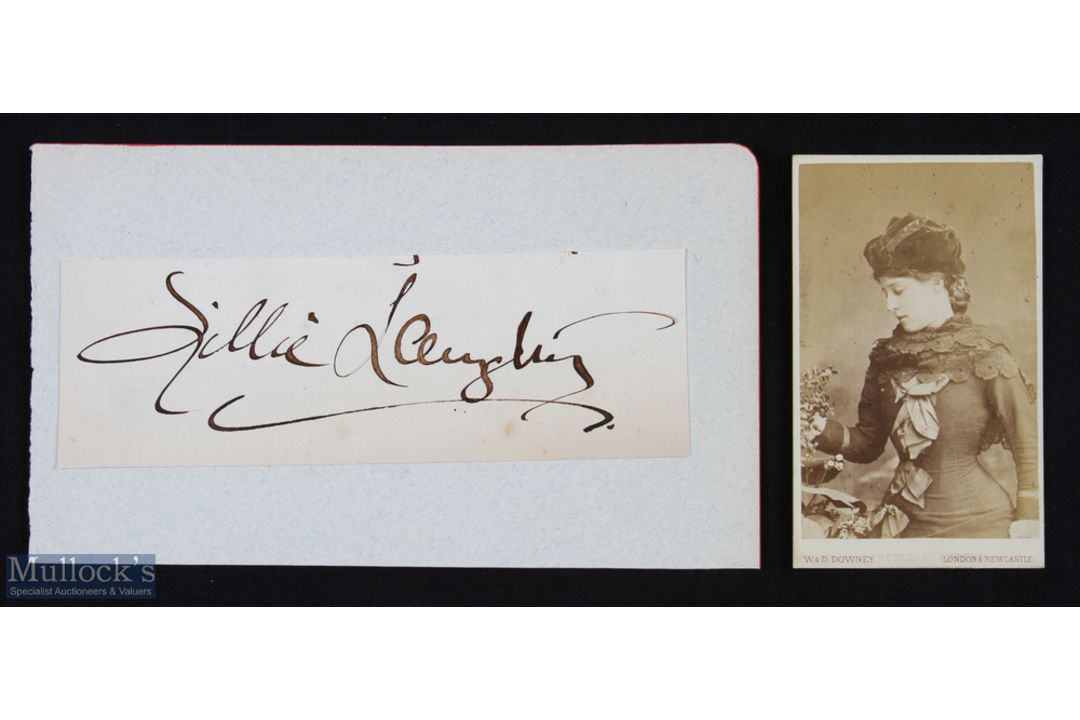 Lillie Langtry
W. & D. DOWNEY LONDON & NEWCASTLE
Mullock's
Specialist Auctioneers & Valuers